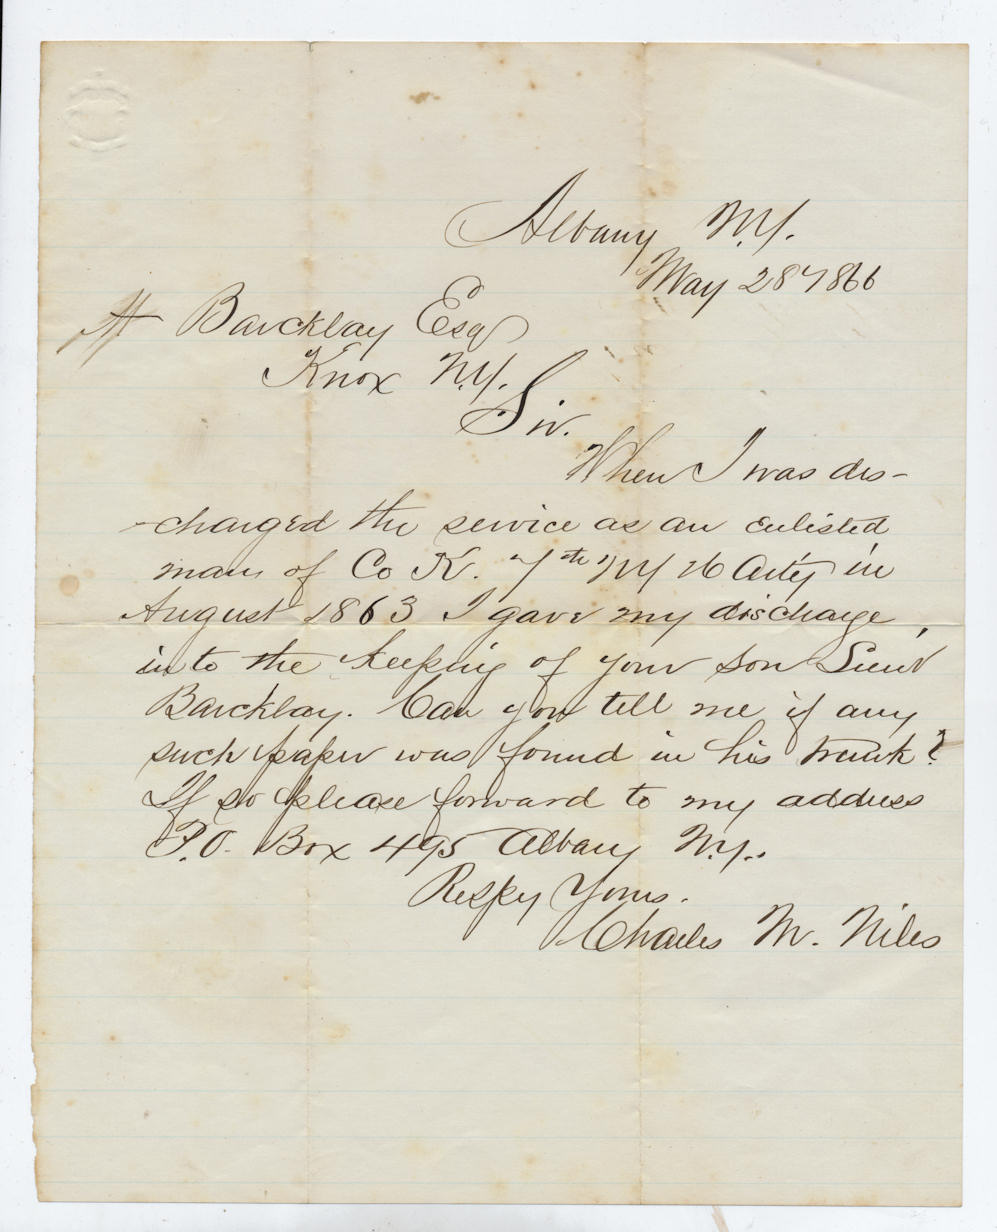 Albany N.Y.
May 28 1866
A Barckley Esq
Knox N.Y.
Sir.
When I was dis-
-charged the service as an enlisted
man of Co K. 7th NY H Arty in
August 1863 I gave my discharge
into the keeping of your son Lieut
Barckley. Can you tell me if any
such paper was found in his trunk?
If so please forward to my address
P.O. Box 495 Albany N.Y.
Respy Yours.
Charles M. Niles